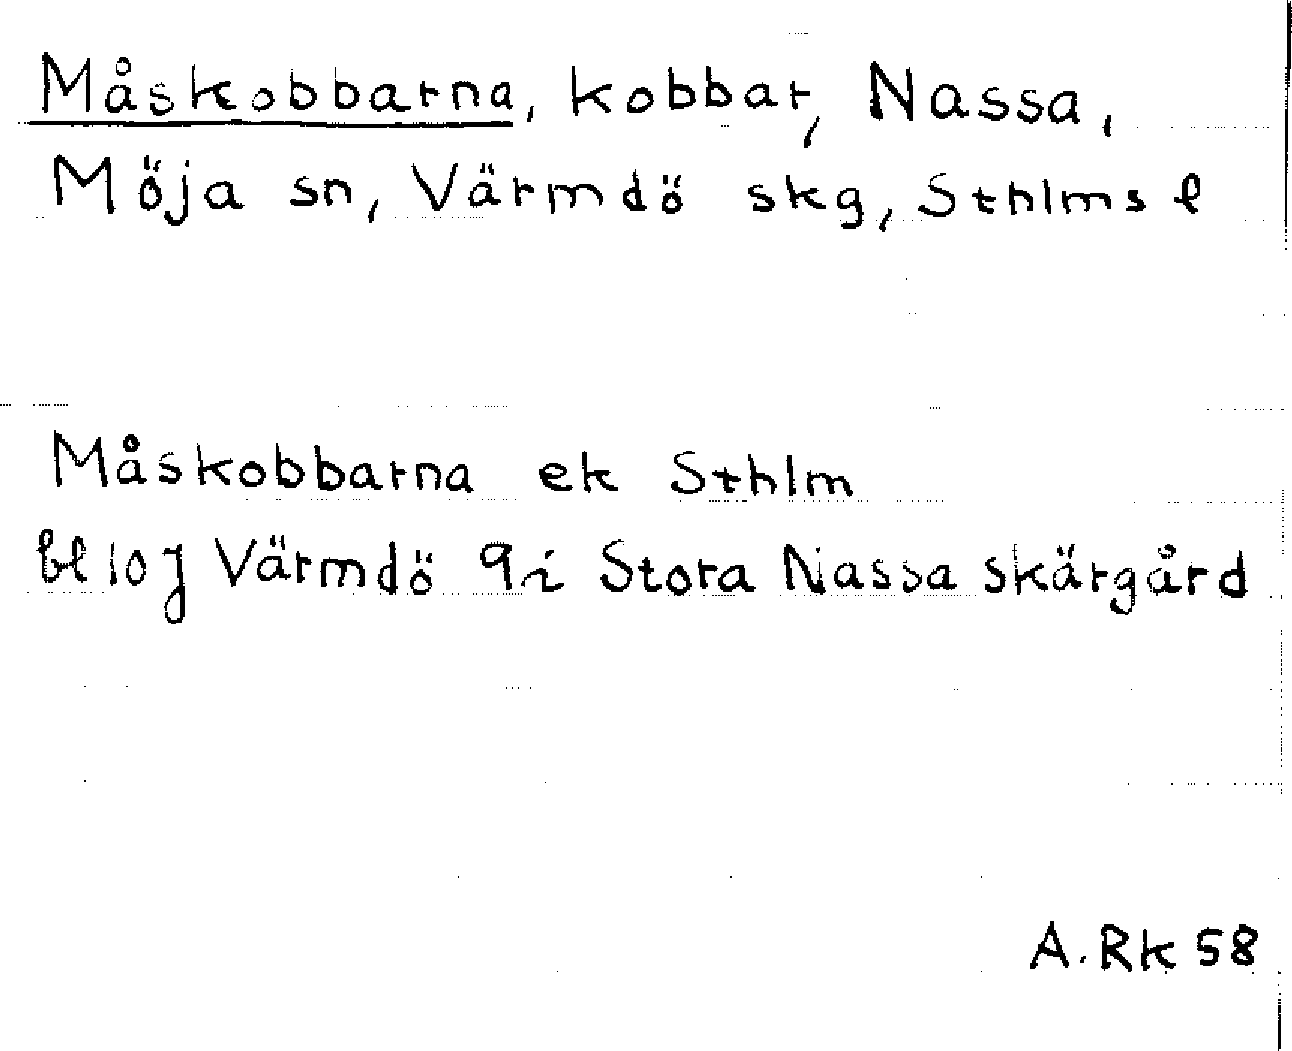 Måskobbarna, kobbar, Nassa,
Möja sn, Värmdö skg, Sthlms l
Måskobbarna ek Sthlm
bl 10J Värmdö 9i Stora Nassa skärgård
A. Rk 58